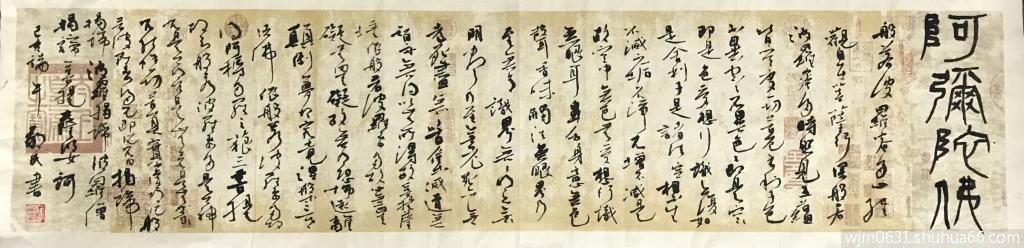 阿彌陀佛
般若波羅蜜多心经
觀自在菩薩行深般若
波羅蜜多時照見五蘊
皆空度一切苦厄舍利子色
不異空空不異色色即是空空
即是色受想行識亦復如
是舍利子是諸法空相不生
不滅不垢不淨不增不減是
故空中無色無受想行識
無眼耳鼻舌身意無色
聲香味觸法無眼界乃
至無意識界無無明亦無
無明盡乃至無老死亦無
老死盡無苦集滅道無
智亦無得以無所得故菩提薩
埵依般若波羅蜜多故心無罣
礙無罣礙故無有恐怖遠離
顛倒夢想究竟涅槃三世
諸佛依般若波羅蜜多故
得阿耨多羅三藐三菩提
故知般若波羅蜜多是大神
咒是大明咒是無上咒是無等等
咒能除一切苦真實不虛故說般
若波羅蜜多咒即說咒曰揭諦
揭諦波羅揭諦波羅僧
揭諦菩提薩婆訶
己亥端午民書
wjm0631.shuhua66.com